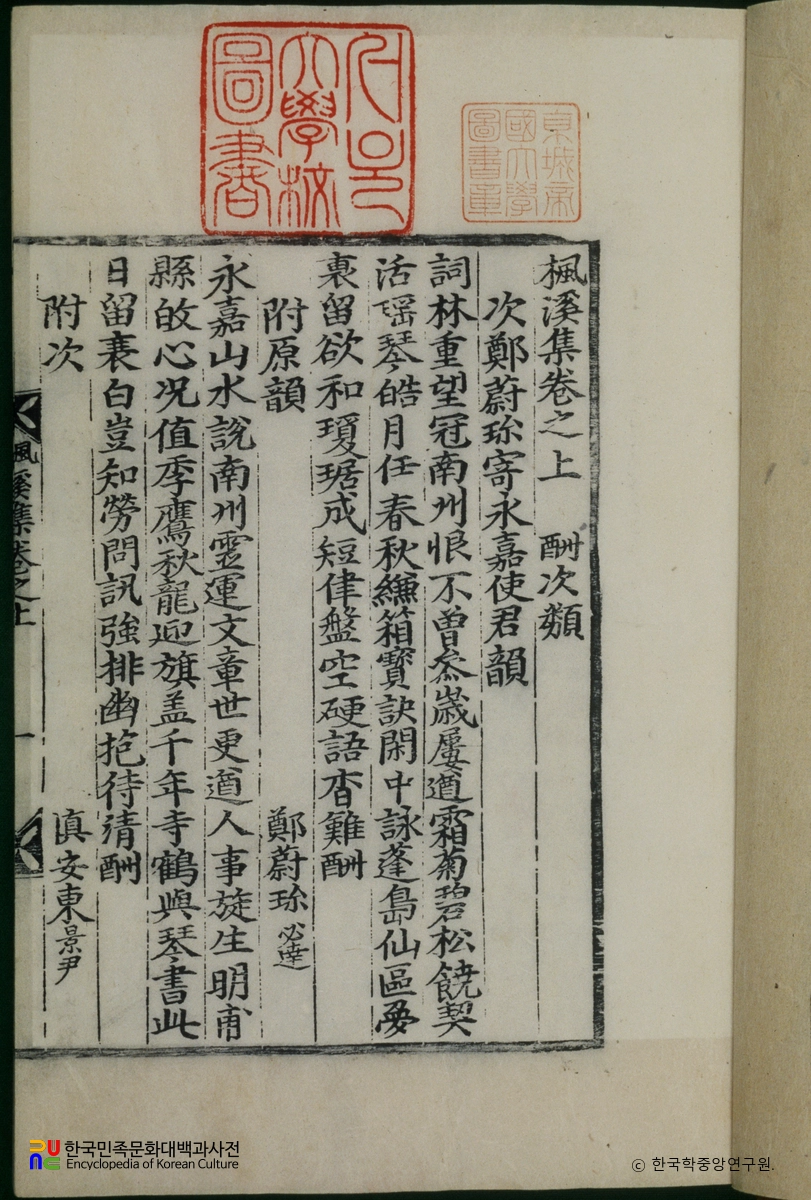 서울
大學校
圖書
京城帝
國大學
圖書章
楓溪集卷之上 酬次類
次鄭蔚珍寄永嘉使君韻
詞林重望冠南州恨不曾叅歲屢遒霜菊碧松饒契
活瑤琴皓月任春秋縑箱寶訣閑中詠蓬島仙區夢
裏留欲和瓊琚成短律盤空硬語杳難酬
附原韻 鄭蔚珍必達
永嘉山水說南州靈運文章世更遒人事旋生明甫
縣故心况值季鷹秋龍迎旗盖千年寺鶴與琴書此
日留衰白豈知勞問訊強排幽抱待清酬
附次 愼安東景尹
楓溪集卷之上 一
한국민족문화대백과사전
Encyclopedia of Korean Culture
ⓒ 한국학중앙연구원.